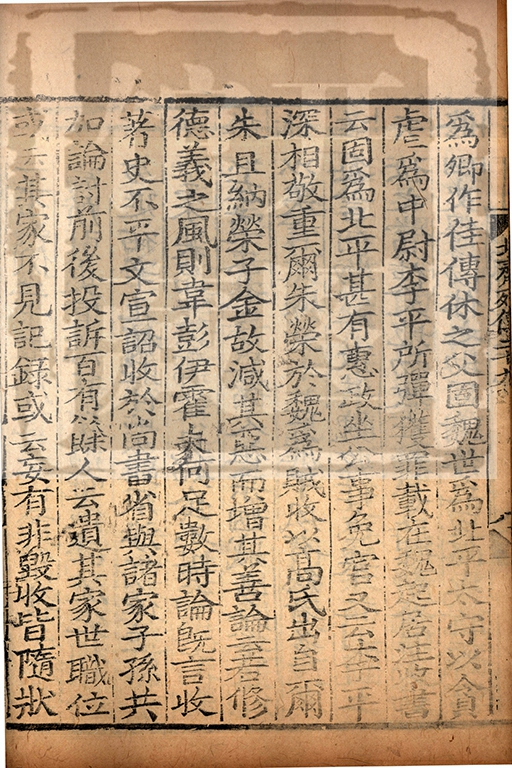 為卿作佳傳休之父固魏世為北平太守以貪
虐為中尉李平所彈獲罪載在魏起居注收書
云固為北平甚有惠政坐公事免官又云李平
深相敬重尔朱榮於魏為賊收以高氏出自爾
朱且納榮子金故減其惡而增其善論云若修
德義之風則韋彭伊霍夫何足數時論既言收
著史不平文宣詔收於尚書省與諸家子孫共
加論討前後投訴百有餘人云遺其家世職位
或云其家不見記錄或云妄有非毀收皆隨狀